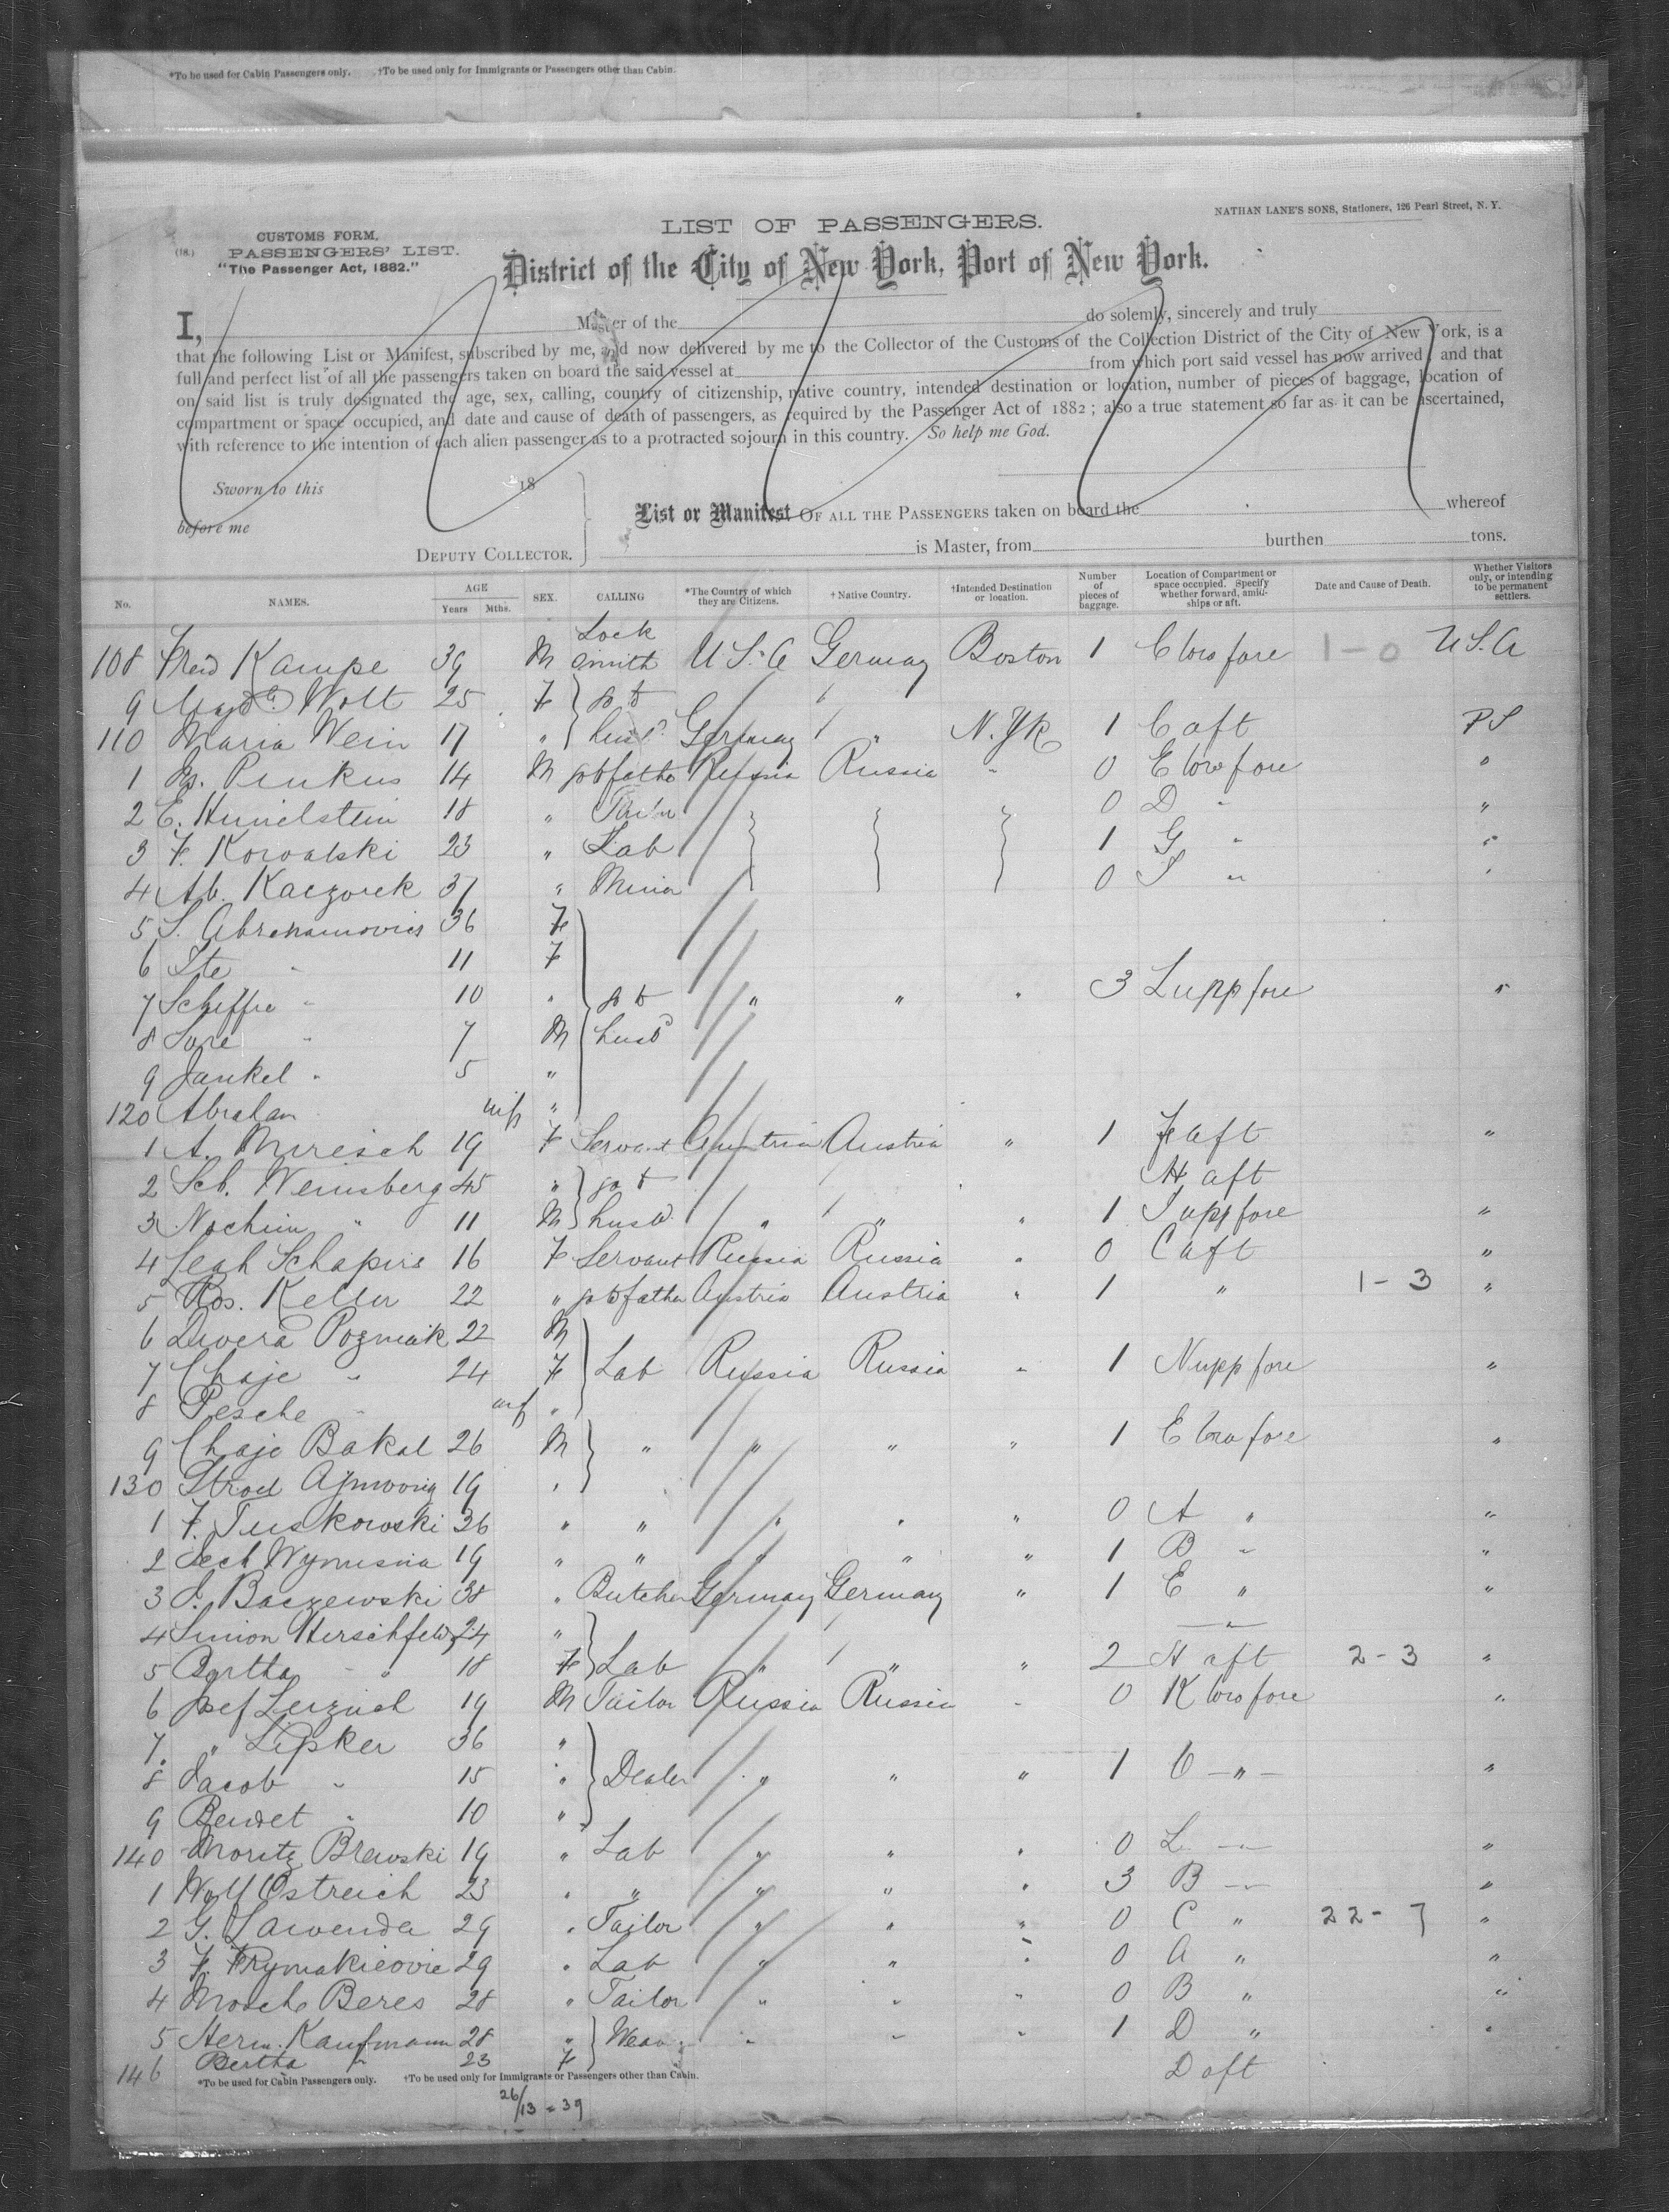 *To be used for Cabin Passengers only. †To be used only for Immigrants or Passengers other than Cabin.
NATHAN LANE'S SONS, Stationers, 126 Pearl Street, N. Y.
LIST OF PASSENGERS.
(18.) CUSTOMS FORM.
PASSENGERS' LIST.
"The Passenger Act, 1882."
District of the City of New York, Port of New York.
I, Master of the do solemly, sincerely and truly
that the following List or Manifest, subscribed by me, and now delivered by me to the Collector of the Customs of the Collection District of the City of New York, is a
full and perfect list of all the passengers taken on board the said vessel at from which port said vessel has now arrived; and that
on said list is truly designated the age, sex, calling, country of citizenship, native country, intended destination or location, number of pieces of baggage, location of
compartment or space occupied, and date and cause of death of passengers, as required by the Passenger Act of 1882; also a true statement so far as it can be ascertained,
with reference to the intention of each alien passenger as to a protracted sojourn in this country. So help me God.
Sworn to this 18
before me
DEPUTY COLLECTOR.
List or Manifest OF ALL THE PASSENGERS taken on board the whereof
is Master, from burthen tons.
No. NAMES. AGE Years Mths. SEX. CALLING *The Country of which they are Citizens. †Native Country. †Intended Destination or location. Number of pieces of baggage. Location of Compartment or space occupied. Specify whether forward, amidships or aft. Date and Cause of Death. Whether Visitors only, or intending to be permanent settlers.
108 Fred Kampe 39 M Lock smith U.S.A Germany Boston 1 C low fore 1-0 U.S.A
9 Wolt 25 F go to
110 Maria Wein 17 " husd. Germany " N.Yk 1 C aft P S
1 Pinkus 14 M go to fathe Russia Russia " 0 E low fore "
2 E. 18 " Tailor 0 D " "
3 F. Kowalski 23 " Lab 1 G " "
4 Ab. Kaczorek 37 " 0 "
5 S. Abrahamovics 36 F
6 Ite " 11 F
7 Scheffre " 10 " go to " " " 3 L upp fore "
8 Sore " 7 M husd
9 Jankel " 5 "
120 Abraham inf "
1 A. Miresch 19 F Servant Austria Austria " 1 F aft "
2 Sch. Weinsberg 45 " go t H aft
3 Nochim " 11 M husd. " " " 1 upp fore "
4 Leah Schapire 16 F Servant Russia Russia " 0 C aft "
5 Ros. Keller 22 " go to father Austria Austria " 1 " 1-3 "
6 Dwera Pozniak 22 M
7 Chaje " 24 F Lab Russia Russia " 1 N upp fore "
8 Pesche " inf "
9 Chaje Bakal 26 M " " " " 1 E low fore "
130 19 "
1 F. Tuskowski 36 " " " " " 0 A " "
2 19 " " " " " 1 B " "
3 Baczewski 38 " Butcher Germany Germany " 1 E " "
4 Simon Hirschfeld 24 " "
5 Bertha " 18 F Lab " " " 2 H aft 2-3 "
6 Josef 19 M Tailor Russia Russia " 0 K low fore "
7 " Lipker 36 "
8 Jacob " 15 " Dealer " " " 1 " "
9 Bendet " 10 "
140 Moritz Brewski 19 " Lab " " " 0 L " "
1 Wolf Ostreich 23 " " " " " 3 B " "
2 G. Lawenda 29 " Tailor " " " 0 C " 22-7 "
3 F. 29 " Lab " " " 0 A " "
4 Mosche Beres 28 " Tailor " " " 0 B " "
5 Herm. Kaufmann 28 " " " " 1 D " "
146 Bertha " 23 F D aft
*To be used for Cabin Passengers only. †To be used only for Immigrants or Passengers other than Cabin.
26/13 = 39